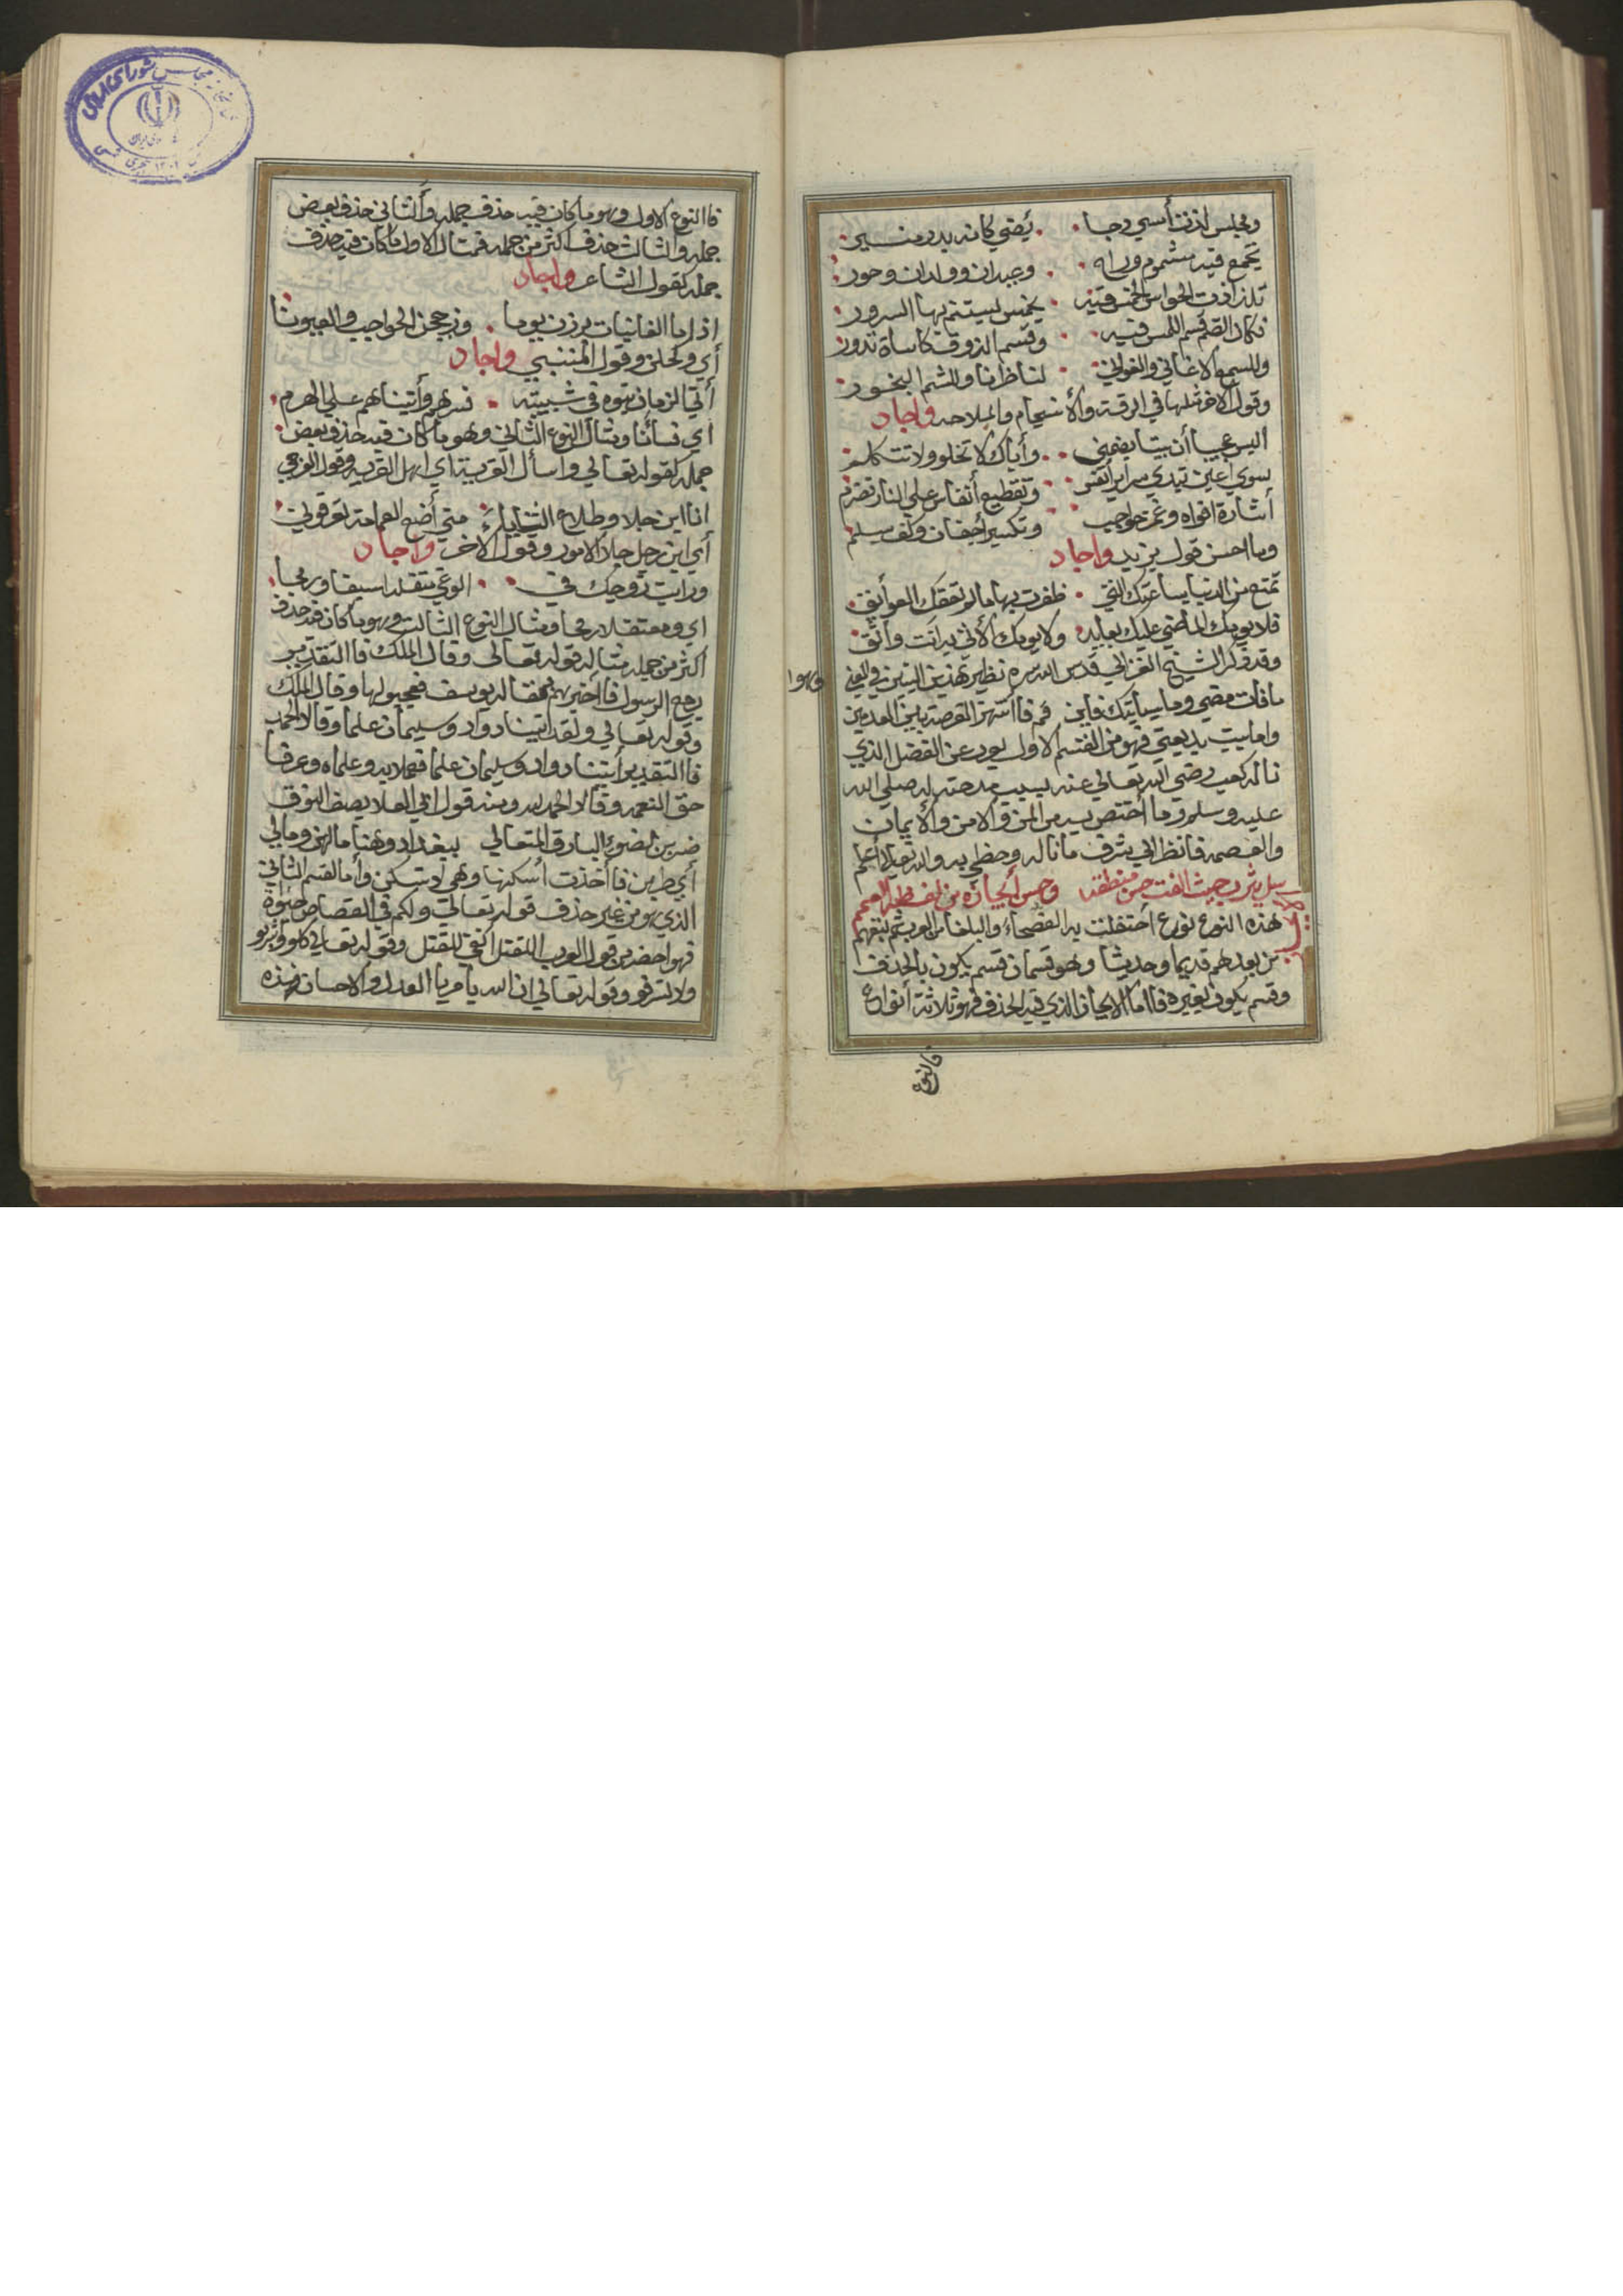 ومجلس لذت أسي دجا • يضي كانه بدر منير
يجمع فيه مشموم وراه • وعيدان وولدان وحور
تلذذت الحواس الخمس فيه • بخمس يستتم بها السرور
فكان الضم قسم اللمس فيه • وقسم الذوق كاساة تدور
وللسمع الاغاني والغواني • لناظرنا وللشم البخور
وقول الاخر مثلها في الرقة والأنسجام والملاحه واجاد
اليس عجيبا أن بيتا يضمني • وأياك لا نخلو ولا نتكلم
سوي أعين تبدي سراير أنفس • وتقطيع أنفاس علي النار تضرم
أشارة افواه وغمز حواجب • وتكسير أجفان وكف يسلم
وما احسن قول يزيد واجاد
تمتع من الدنيا بساعتك التي • ظفرت بها مالم تعقك العوائق
فلا يومك الماضي عليك بعايد ولا يومك الأتي به انت واثق
وقد ذكر الشيخ الغزالي قدس الله سره نظير هذين البيتين في المعني وهوا
ما فات مضي وما سيأتيك فاين قم فاانتهز الفرصة بين العدمين
واما بيت بديعتي فهو من القسم الاول يعود عن الفضل الذي
ناله كعب رضي الله تعالي عنه بسبب مدحته له صلي الله
عليه وسلم وما أختص به من المن والامن والأيمان
والعصمه فانظر الي شرف ما ناله وحظي به والله تعالي أعلم
سل يثرب حيث الفت حسن منطقه وحسن أيجازه من لفظه العمم
هذه النوع نوع أحتفلت به الفصحاء والبلغا من العرب ثم تبعهم
من بعدهم قديما وحديثا وهو قسمان قسم يكون بالحذف
وقسم يكون بغيره فااما الايجاز الذي فيه الحذف فهو ثلاثة أنواع
فاالنوع
فاالنوع الاول وهو ما كان فيه حذف جمله وألثاني حذف بعض
جمله والثالث حذف اكثر من جمله فمثال الاول ما كان فيه حذف
جمله كقول الشاعر واجاد
اذا ما الغانيات برزن يوما • وزججن الحواجب والعيونا
أي وكحلن وقول المتنبي واجاد
أتي الزمان بنوه في شبيبته • فسرهم وأتيناهم علي الهرم
أي فسأنا ومثال النوع الثاني وهو ما كان فيه حذف بعض
جمله كقوله تعالي واسأل القرية اي اهل القريه وقول العرجي
انا ابن جلا وطلاع الثنايا • متي أضع العمامة تعرفوني
أي ابن رجل جلا الامور وقول الاخر واجاد
ورايت زوجك في • الوغي متقلدا سيفا ورمحا
اي ومعتقلا رمحا ومثال النوع الثالث وهو ما كان فيه حذف
اكثر من جمله مثاله قوله تعالى وقال الملك فاالتقدير
رجع الرسول فاأخبرهم بمقاله يوسف فعجبو لها وقال الملك
وقوله تعالي ولقد اتينا دواد وسليمان علما وقالا الحمد
فاالتقدير أيتنا دواد وسليمان علما فعملا به وعلماه وعرفا
حق النعمه وقالا الحمد لله ومنه قول ابي العلا يصف النوق
ضربن لضوء البارق المتعالي ببغداد وهنا مالهن ومالي
أي طربن فاأخذت أسكنها وهي لا تسكن وأما القسم الثاني
الذي هو من غير حذف قوله تعالي ولكم في القصاص حيوة
فهو اخصر من قول العرب القتل انفي للقتل وقوله تعالي كلو واشربو
ولا تسرفو وقوله تعالي ان الله يأمر باالعدل والاحسان فهذه